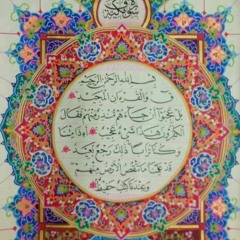 بسم الله الرحمن الرحيم
ق والقرءان المجيد
بل عجبوا أن جاءهم منذر منهم فقال
الكفرون هذا شىء عجيب أءذا متنا
وكنا ترابا ذلك رجع بعيد
قد علمنا ما تنقص الأرض منهم
وعندنا كتب حفيظ